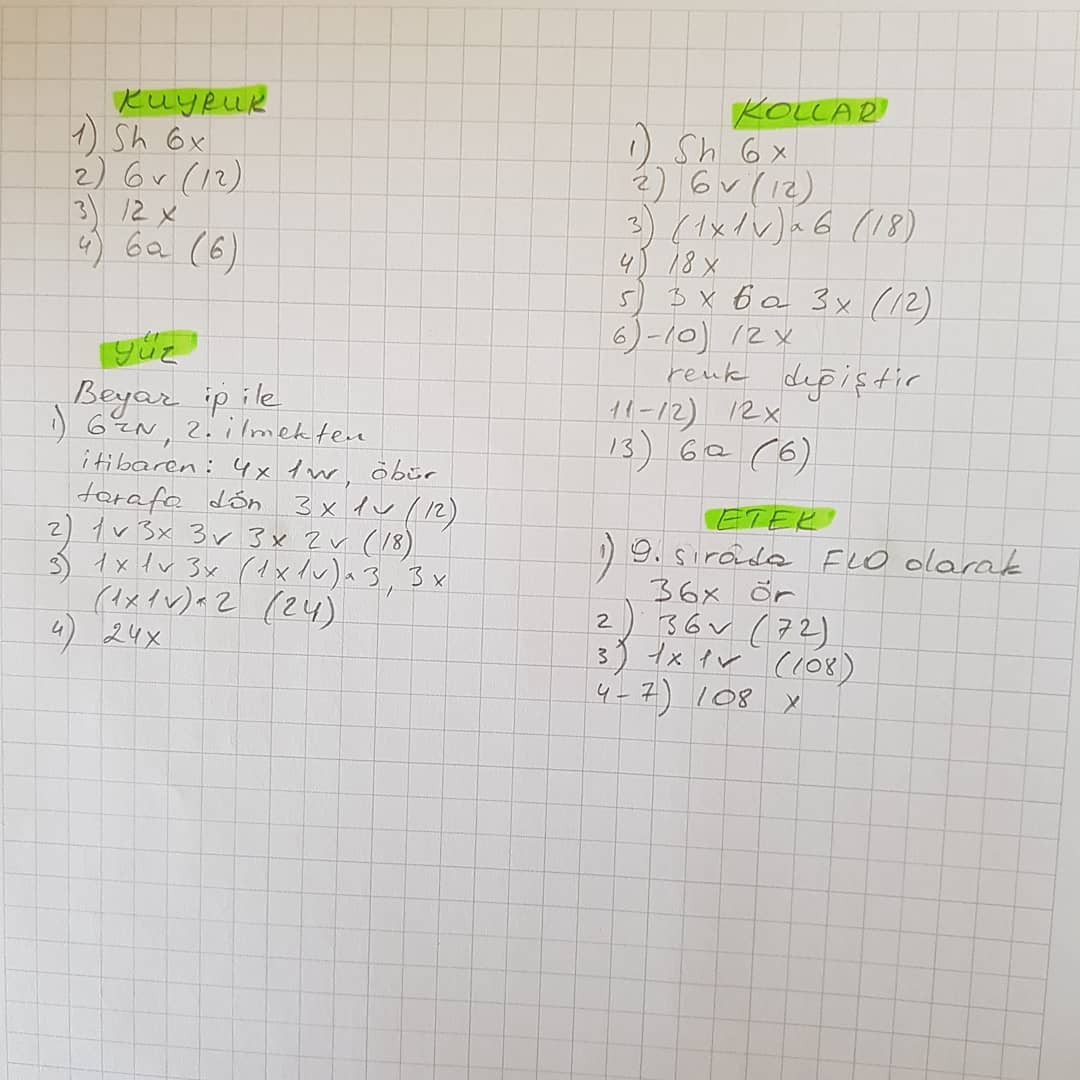 KUYRUK
1) Sh 6x
2) 6v (12)
3) 12 x
4) 6a (6)
YÜZ
Beyaz ip ile
1) 6ZN, 2. ilmekten
itibaren: 4x 1w, öbür
tarafa dön 3x 1v (12)
2) 1v 3x 3v 3x 2v (18)
3) 1x 1v 3x (1x1v)*3, 3x
(1x1v)*2 (24)
4) 24x
KOLLAR
1) Sh 6x
2) 6v (12)
3) (1x1v)*6 (18)
4) 18x
5) 3x 6a 3x (12)
6)-10) 12x
renk değiştir
11-12) 12x
13) 6a (6)
ETEK
1) 9. sırada FLO olarak
36x ör
2) 36v (72)
3) 1x 1v (108)
4-7) 108 x